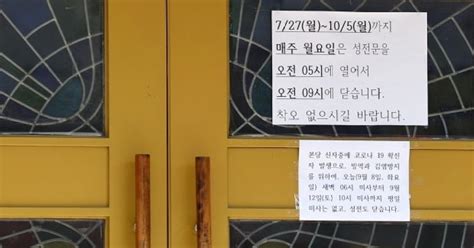 7/27(월)~10/5(월)까지
매주 월요일은 성전문을
오전 05시에 열어서
오전 09시에 닫습니다.
착오 없으시길 바랍니다.
본당 신자중에 코로나 19 확진
자 발생으로, 방역과 감염방지
를 위하여, 오늘(9월 8일, 화요
일) 새벽 06시 미사부터 9월
12일(토) 10시 미사까지 평일
미사는 없고, 성전도 닫습니다.